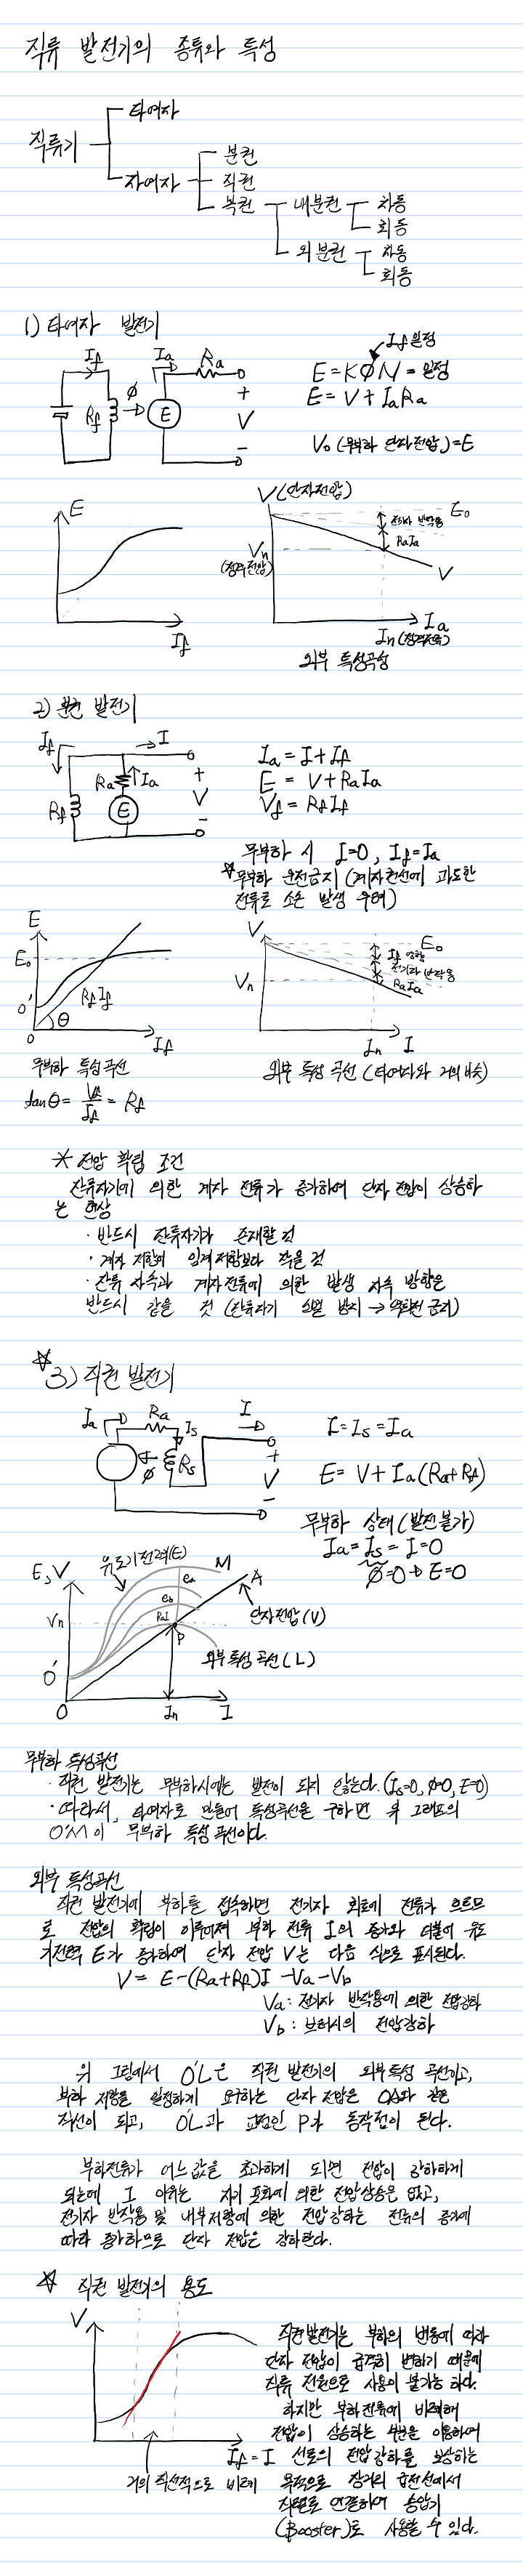 직류 발전기의 종류와 특성
직류기
타여자
자여자
분권
직권
복권
내분권
차동
회동
외분권
차동
회동
1) 타여자 발전기
If
Rf
ϕ
E
Ia
Ra
+
V
-
If 일정
E = KϕN = 일정
E = V + IaRa
Vo (무부하 단자전압) = E
E
If
V(단자전압)
Eo
전기자 반작용
RaIa
Vn
(정격전압)
V
Ia
In (정격전류)
외부 특성곡선
2) 분권 발전기
If
I
Ra
Ia
Rf
E
+
V
-
Ia = I + If
E = V + RaIa
Vf = RfIf
무부하 시 I=0, If=Ia
☆무부하 운전금지 (계자권선에 과도한
전류로 소손 발생 우려)
E
Eo
O'
O
RfIf
θ
If
무부하 특성곡선
tanθ = Vf/If = Rf
V
Eo
If 영향
전기자 반작용
RaIa
Vn
In
I
외부 특성 곡선 (타여자와 거의 비슷)
* 전압 확립 조건
잔류자기에 의한 계자 전류가 증가하여 단자 전압이 상승하
는 현상
· 반드시 잔류자기가 존재할 것
· 계자 저항이 임계저항보다 작을 것
· 잔류 자속과 계자전류에 의한 발생 자속 방향은
반드시 같을 것 (잔류자기 소멸 방지 → 역회전 금지)
☆3) 직권 발전기
Ia
Ra
Is
ϕ
Rs
I
+
V
-
I = Is = Ia
E = V + Ia(Ra+Rf)
무부하 상태 (발전불가)
Ia = Is = I = 0
ϕ=0 → E=0
E, V
유도기전력(E)
M
A
ea
eb
RaI
Vn
P
단자전압(V)
외부특성 곡선(L)
O'
O
In
I
무부하 특성곡선
· 직권 발전기는 무부하시에는 발전이 되지 않는다. (Is=0, ϕ=0, E=0)
· 따라서, 타여자로 만들어 특성곡선을 구하면 위 그래프의
O'M이 무부하 특성 곡선이다.
외부 특성곡선
직권 발전기에 부하를 접속하면 전기자 회로에 전류가 흐르므
로 전압의 확립이 이루어져 부하 전류 I의 증가와 더불어 유도
기전력 E가 증가하여 단자 전압 V는 다음 식으로 표시된다.
V = E-(Ra+Rf)I -Va-Vb
Va : 전기자 반작용에 의한 전압강하
Vb : 브러시의 전압강하
위 그림에서 O'L은 직권 발전기의 외부특성 곡선이고,
부하 저항을 일정하게 요구하는 단자 전압은 OA와 같은
직선이 되고, O'L과 교점인 P가 동작점이 된다.
부하전류가 어느 값을 초과하게 되면 전압이 강하하게
되는데 I 이후는 자기 포화에 의한 전압상승은 없고,
전기자 반작용 및 내부저항에 의한 전압강하는 전류의 증가에
따라 증가하므로 단자 전압은 강하한다.
☆ 직권 발전기의 용도
V
If = I
거의 직선적으로 비례
직권발전기는 부하의 변동에 따라
단자 전압이 급격히 변하기 때문에
직류 전원으로 사용이 불가능 하다.
하지만 부하전류에 비례해
전압이 상승하는 부분을 이용하여
선로의 전압강하를 보상하는
목적으로 장거리 급전선에서
직렬로 연결하여 승압기
(Booster)로 사용할 수 있다.